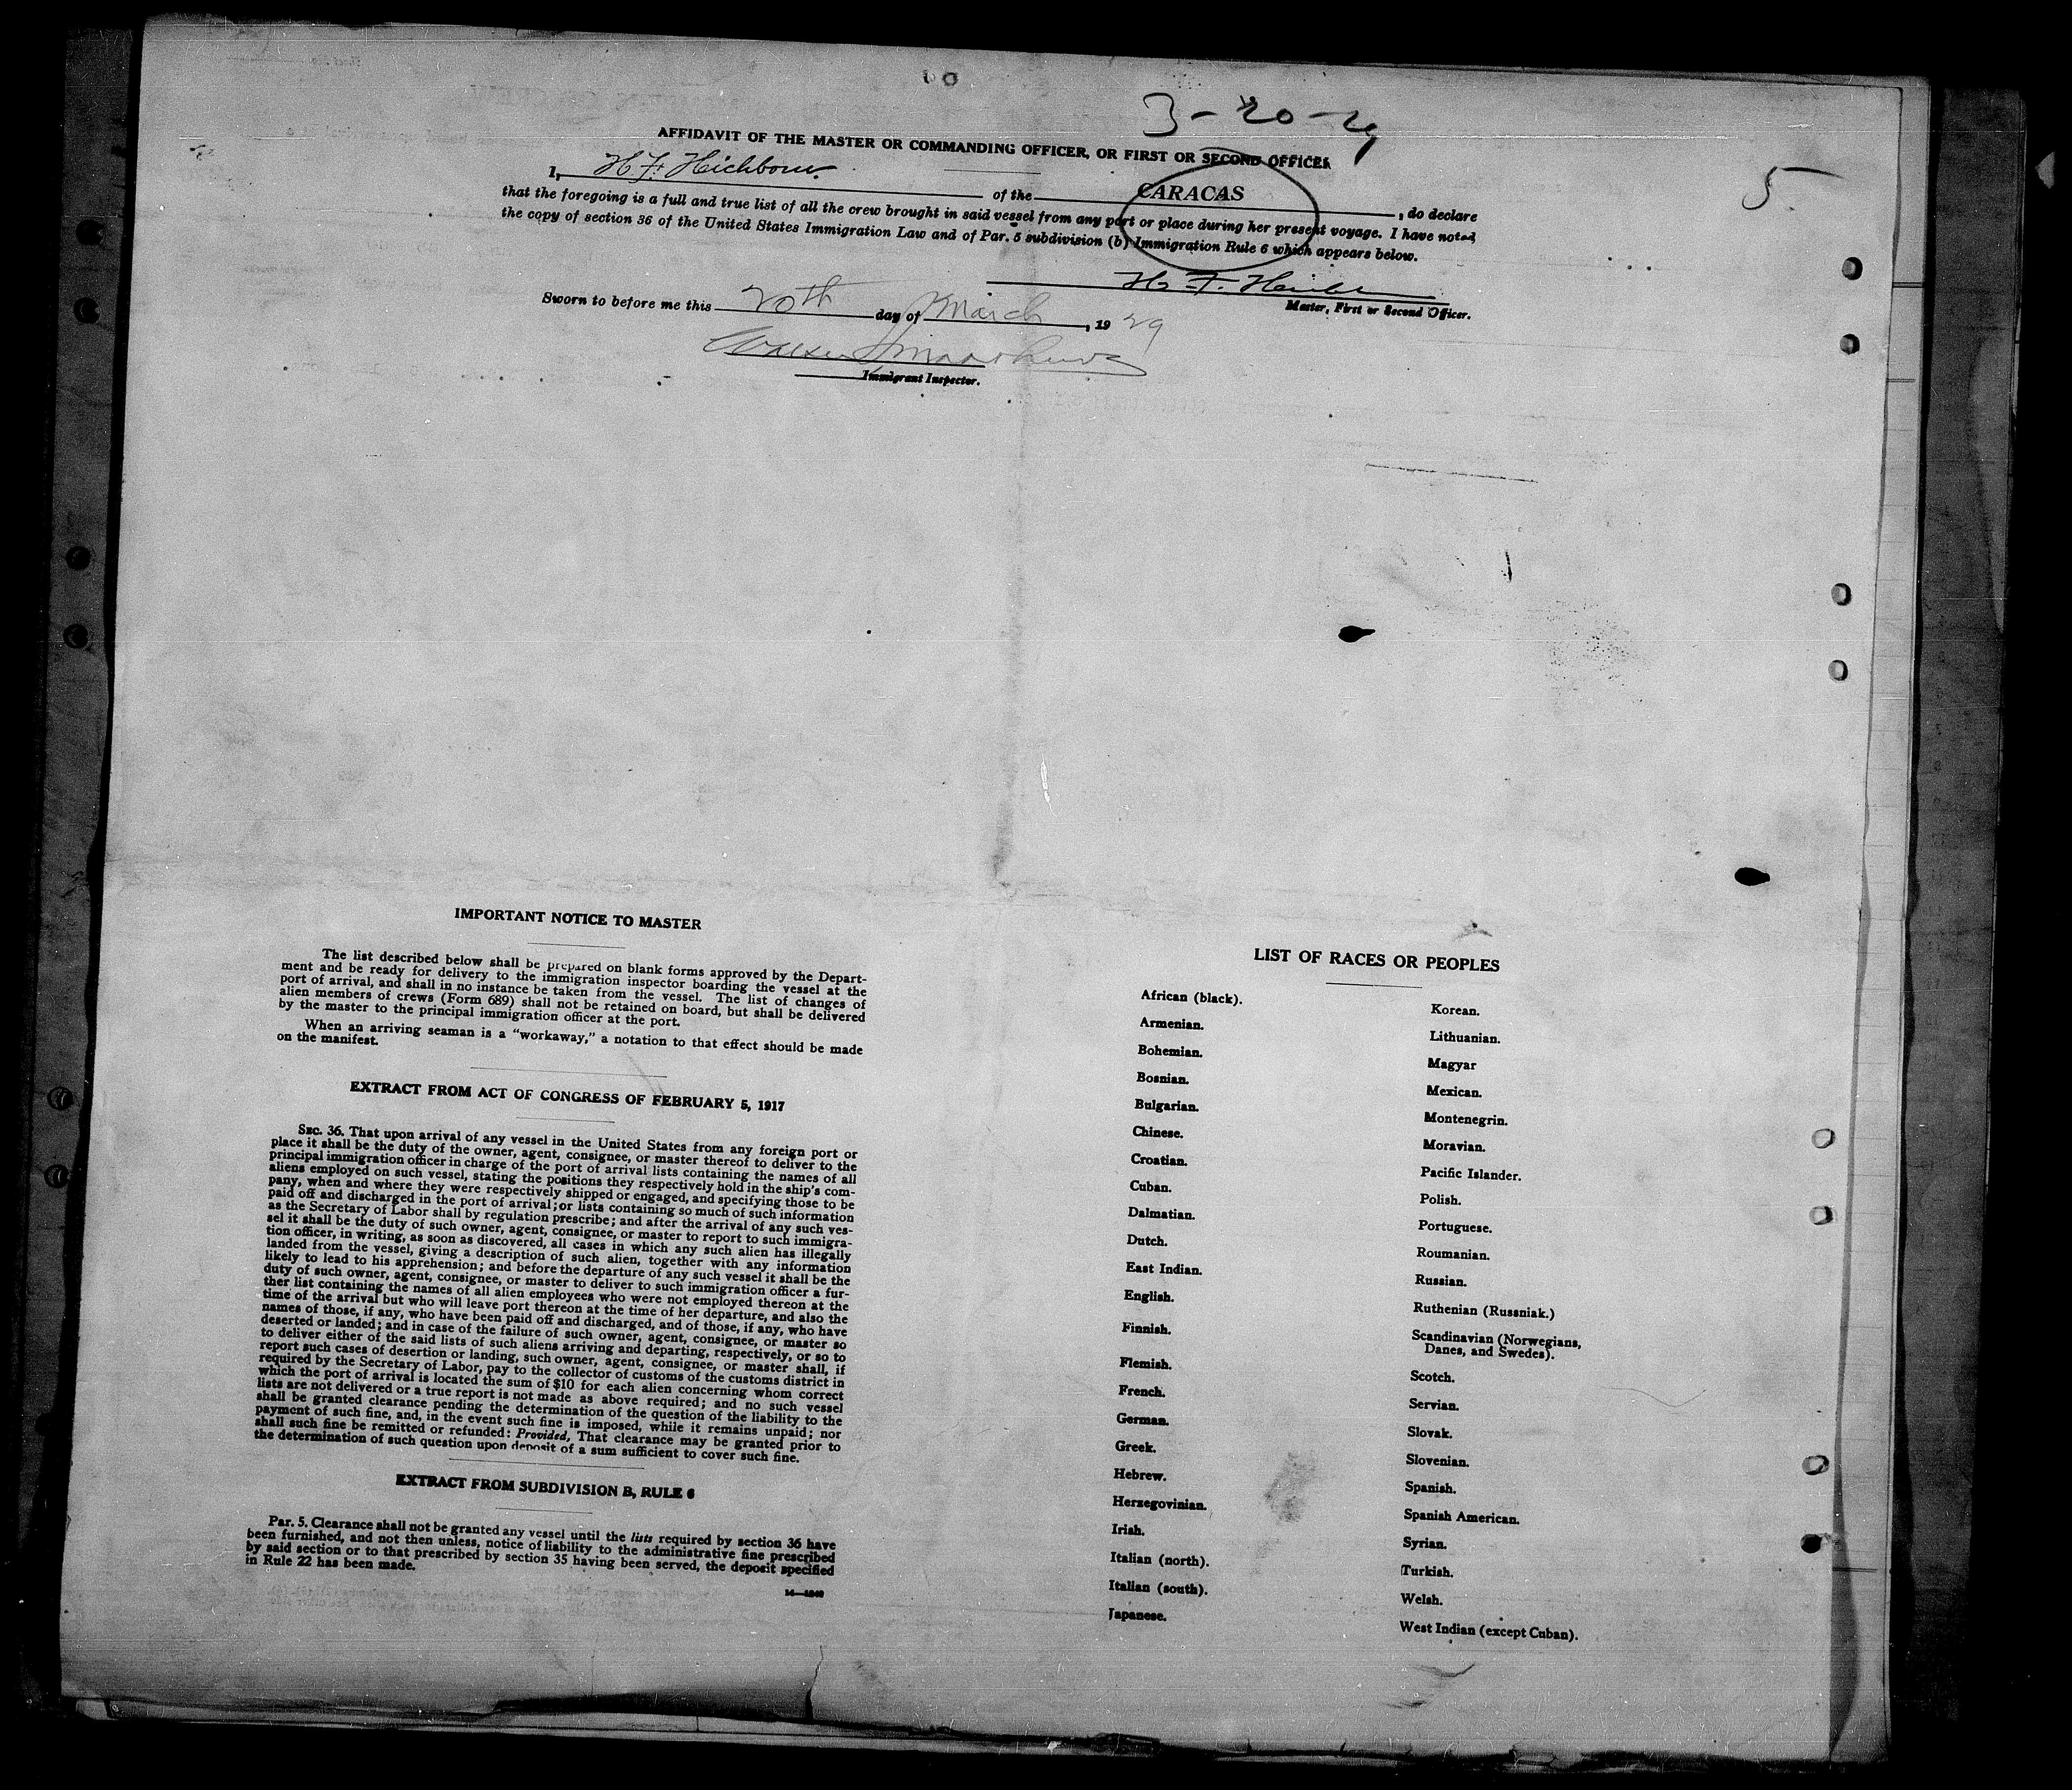 3-20-29
5
AFFIDAVIT OF THE MASTER OR COMMANDING OFFICER, OR FIRST OR SECOND OFFICER
I, H. F. Hichborn. of the CARACAS, do declare
that the foregoing is a full and true list of all the crew brought in said vessel from any port or place during her present voyage. I have noted
the copy of section 36 of the United States Immigration Law and of Par. 5 subdivision (b) Immigration Rule 6 which appears below.
H. F.
Master, First or Second Officer.
Sworn to before me this 20th day of March, 1929
Immigrant Inspector.
IMPORTANT NOTICE TO MASTER
The list described below shall be prepared on blank forms approved by the Depart-
ment and be ready for delivery to the immigration inspector boarding the vessel at the
port of arrival, and shall in no instance be taken from the vessel. The list of changes of
alien members of crews (Form 689) shall not be retained on board, but shall be delivered
by the master to the principal immigration officer at the port.
When an arriving seaman is a "workaway," a notation to that effect should be made
on the manifest.
EXTRACT FROM ACT OF CONGRESS OF FEBRUARY 5, 1917
SEC. 36. That upon arrival of any vessel in the United States from any foreign port or
place it shall be the duty of the owner, agent, consignee, or master thereof to deliver to the
principal immigration officer in charge of the port of arrival lists containing the names of all
aliens employed on such vessel, stating the positions they respectively hold in the ship's com-
pany, when and where they were respectively shipped or engaged, and specifying those to be
paid off and discharged in the port of arrival; or lists containing so much of such information
as the Secretary of Labor shall by regulation prescribe; and after the arrival of any such ves-
sel it shall be the duty of such owner, agent, consignee, or master to report to such immigra-
tion officer, in writing, as soon as discovered, all cases in which any such alien has illegally
landed from the vessel, giving a description of such alien, together with any information
likely to lead to his apprehension; and before the departure of any such vessel it shall be the
duty of such owner, agent, consignee, or master to deliver to such immigration officer a fur-
ther list containing the names of all alien employees who were not employed thereon at the
time of the arrival but who will leave port thereon at the time of her departure, and also the
names of those, if any, who have been paid off and discharged, and of those, if any, who have
deserted or landed; and in case of the failure of such owner, agent, consignee, or master so
to deliver either of the said lists of such aliens arriving and departing, respectively, or so to
report such cases of desertion or landing, such owner, agent, consignee, or master shall, if
required by the Secretary of Labor, pay to the collector of customs of the customs district in
which the port of arrival is located the sum of $10 for each alien concerning whom correct
lists are not delivered or a true report is not made as above required; and no such vessel
shall be granted clearance pending the determination of the question of the liability to the
payment of such fine, and, in the event such fine is imposed, while it remains unpaid; nor
shall such fine be remitted or refunded: Provided, That clearance may be granted prior to
the determination of such question upon deposit of a sum sufficient to cover such fine.
EXTRACT FROM SUBDIVISION B, RULE 6
Par. 5. Clearance shall not be granted any vessel until the lists required by section 36 have
been furnished, and not then unless, notice of liability to the administrative fine prescribed
by said section or to that prescribed by section 35 having been served, the deposit specified
in Rule 22 has been made.
LIST OF RACES OR PEOPLES
African (black).
Armenian.
Bohemian.
Bosnian.
Bulgarian.
Chinese.
Croatian.
Cuban.
Dalmatian.
Dutch.
East Indian.
English.
Finnish.
Flemish.
French.
German.
Greek.
Hebrew.
Herzegovinian.
Irish.
Italian (north).
Italian (south).
Japanese.
Korean.
Lithuanian.
Magyar
Mexican.
Montenegrin.
Moravian.
Pacific Islander.
Polish.
Portuguese.
Roumanian.
Russian.
Ruthenian (Russniak.)
Scandinavian (Norwegians,
Danes, and Swedes).
Scotch.
Servian.
Slovak.
Slovenian.
Spanish.
Spanish American.
Syrian.
Turkish.
Welsh.
West Indian (except Cuban).